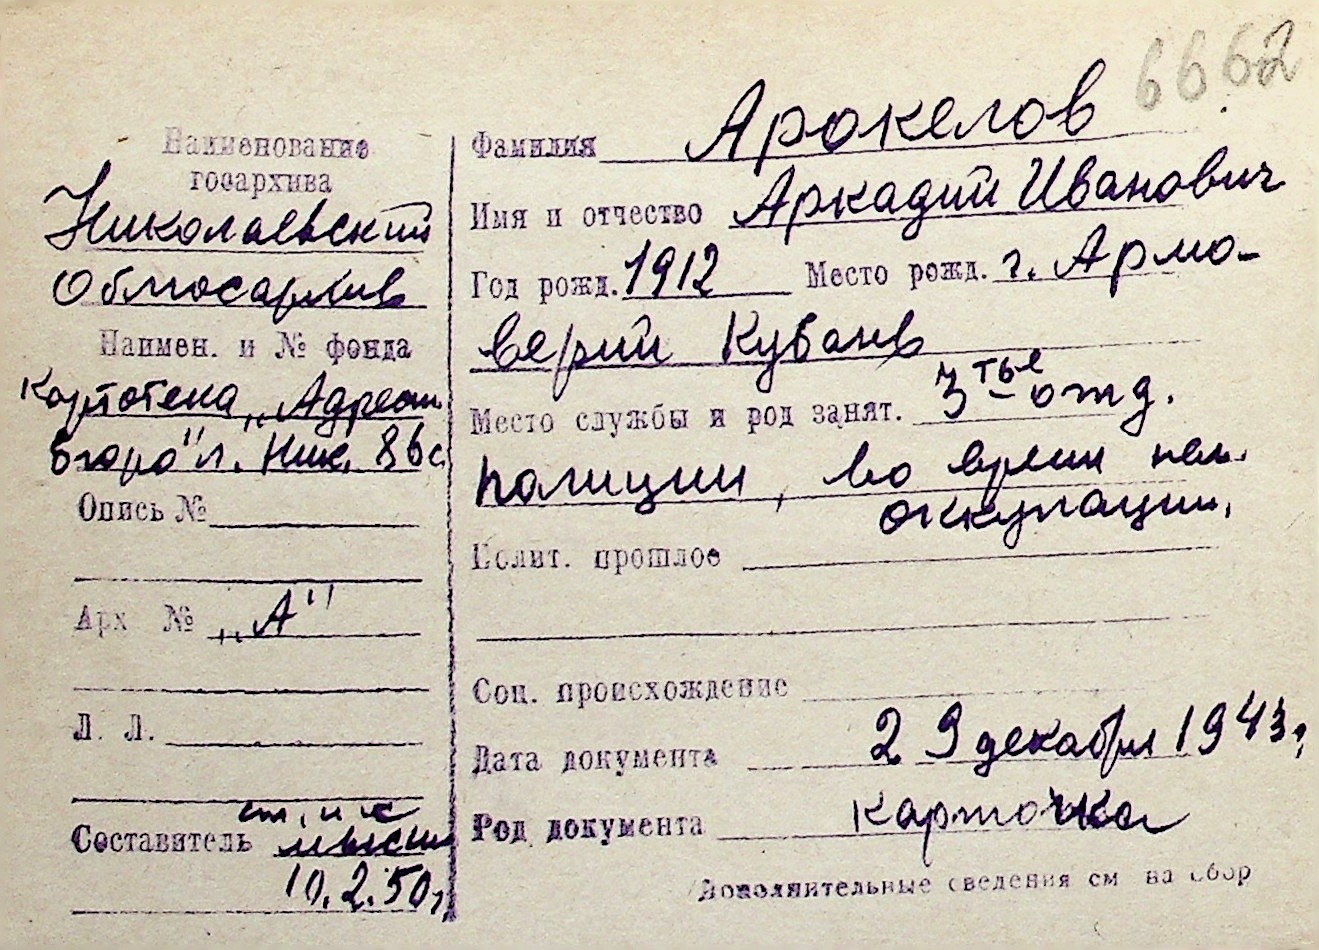 6662
Наименование
госархива
Николаевский
Облгосархив
Наимен. и № фонда
Картотека „Адресн.
бюро" г. Ник. 86 с.
Опись №
Арх №
„А"
Л. Л.
Составитель
10.2.50 г.
Фамилия Арокелов
Имя и отчество Аркадий Иванович
Год рожд. 1912 Место рожд. г. Армо-
верий Кубань
Место службы и род занят. 3-тье отд.
полиции, во время нем.
оккупации.
Полит. прошлое
Соц. происхождение
Дата документа 29 декабря 1943 г.
Род документа карточка
Дополнительные сведения см на обор